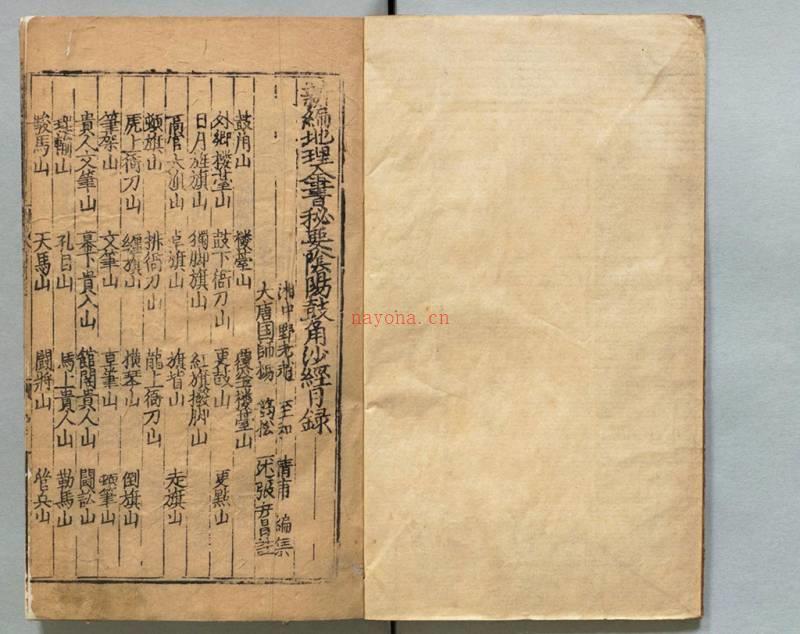 新編地理全書秘奥陰陽鼓角沙經目録
湘中野老 至和 清甫 編集
大唐国師楊 筠松 述 張 註
鼓角山 樓臺山 覆釜樓臺山
外鄉樓臺山 鼓下衙刀山 更鼓山 更點山
日月旌旗山 獨脚旗山 紅旗撥脚山
大旗山 卓旗山 旗首山 走旗山
顿旗山 排衙刀山 龍上衙刀山
虎上衙刀山 纏旗山 横琴山 倒旗山
筆架山 文筆山 草筆山 筆山
貴人文筆山 幕下貴人山 館閣貴人山 鬪訟山
孔目山 馬上貴人山 勒馬山
駿馬山 天馬山 鬪將山 管兵山
nayona.cn